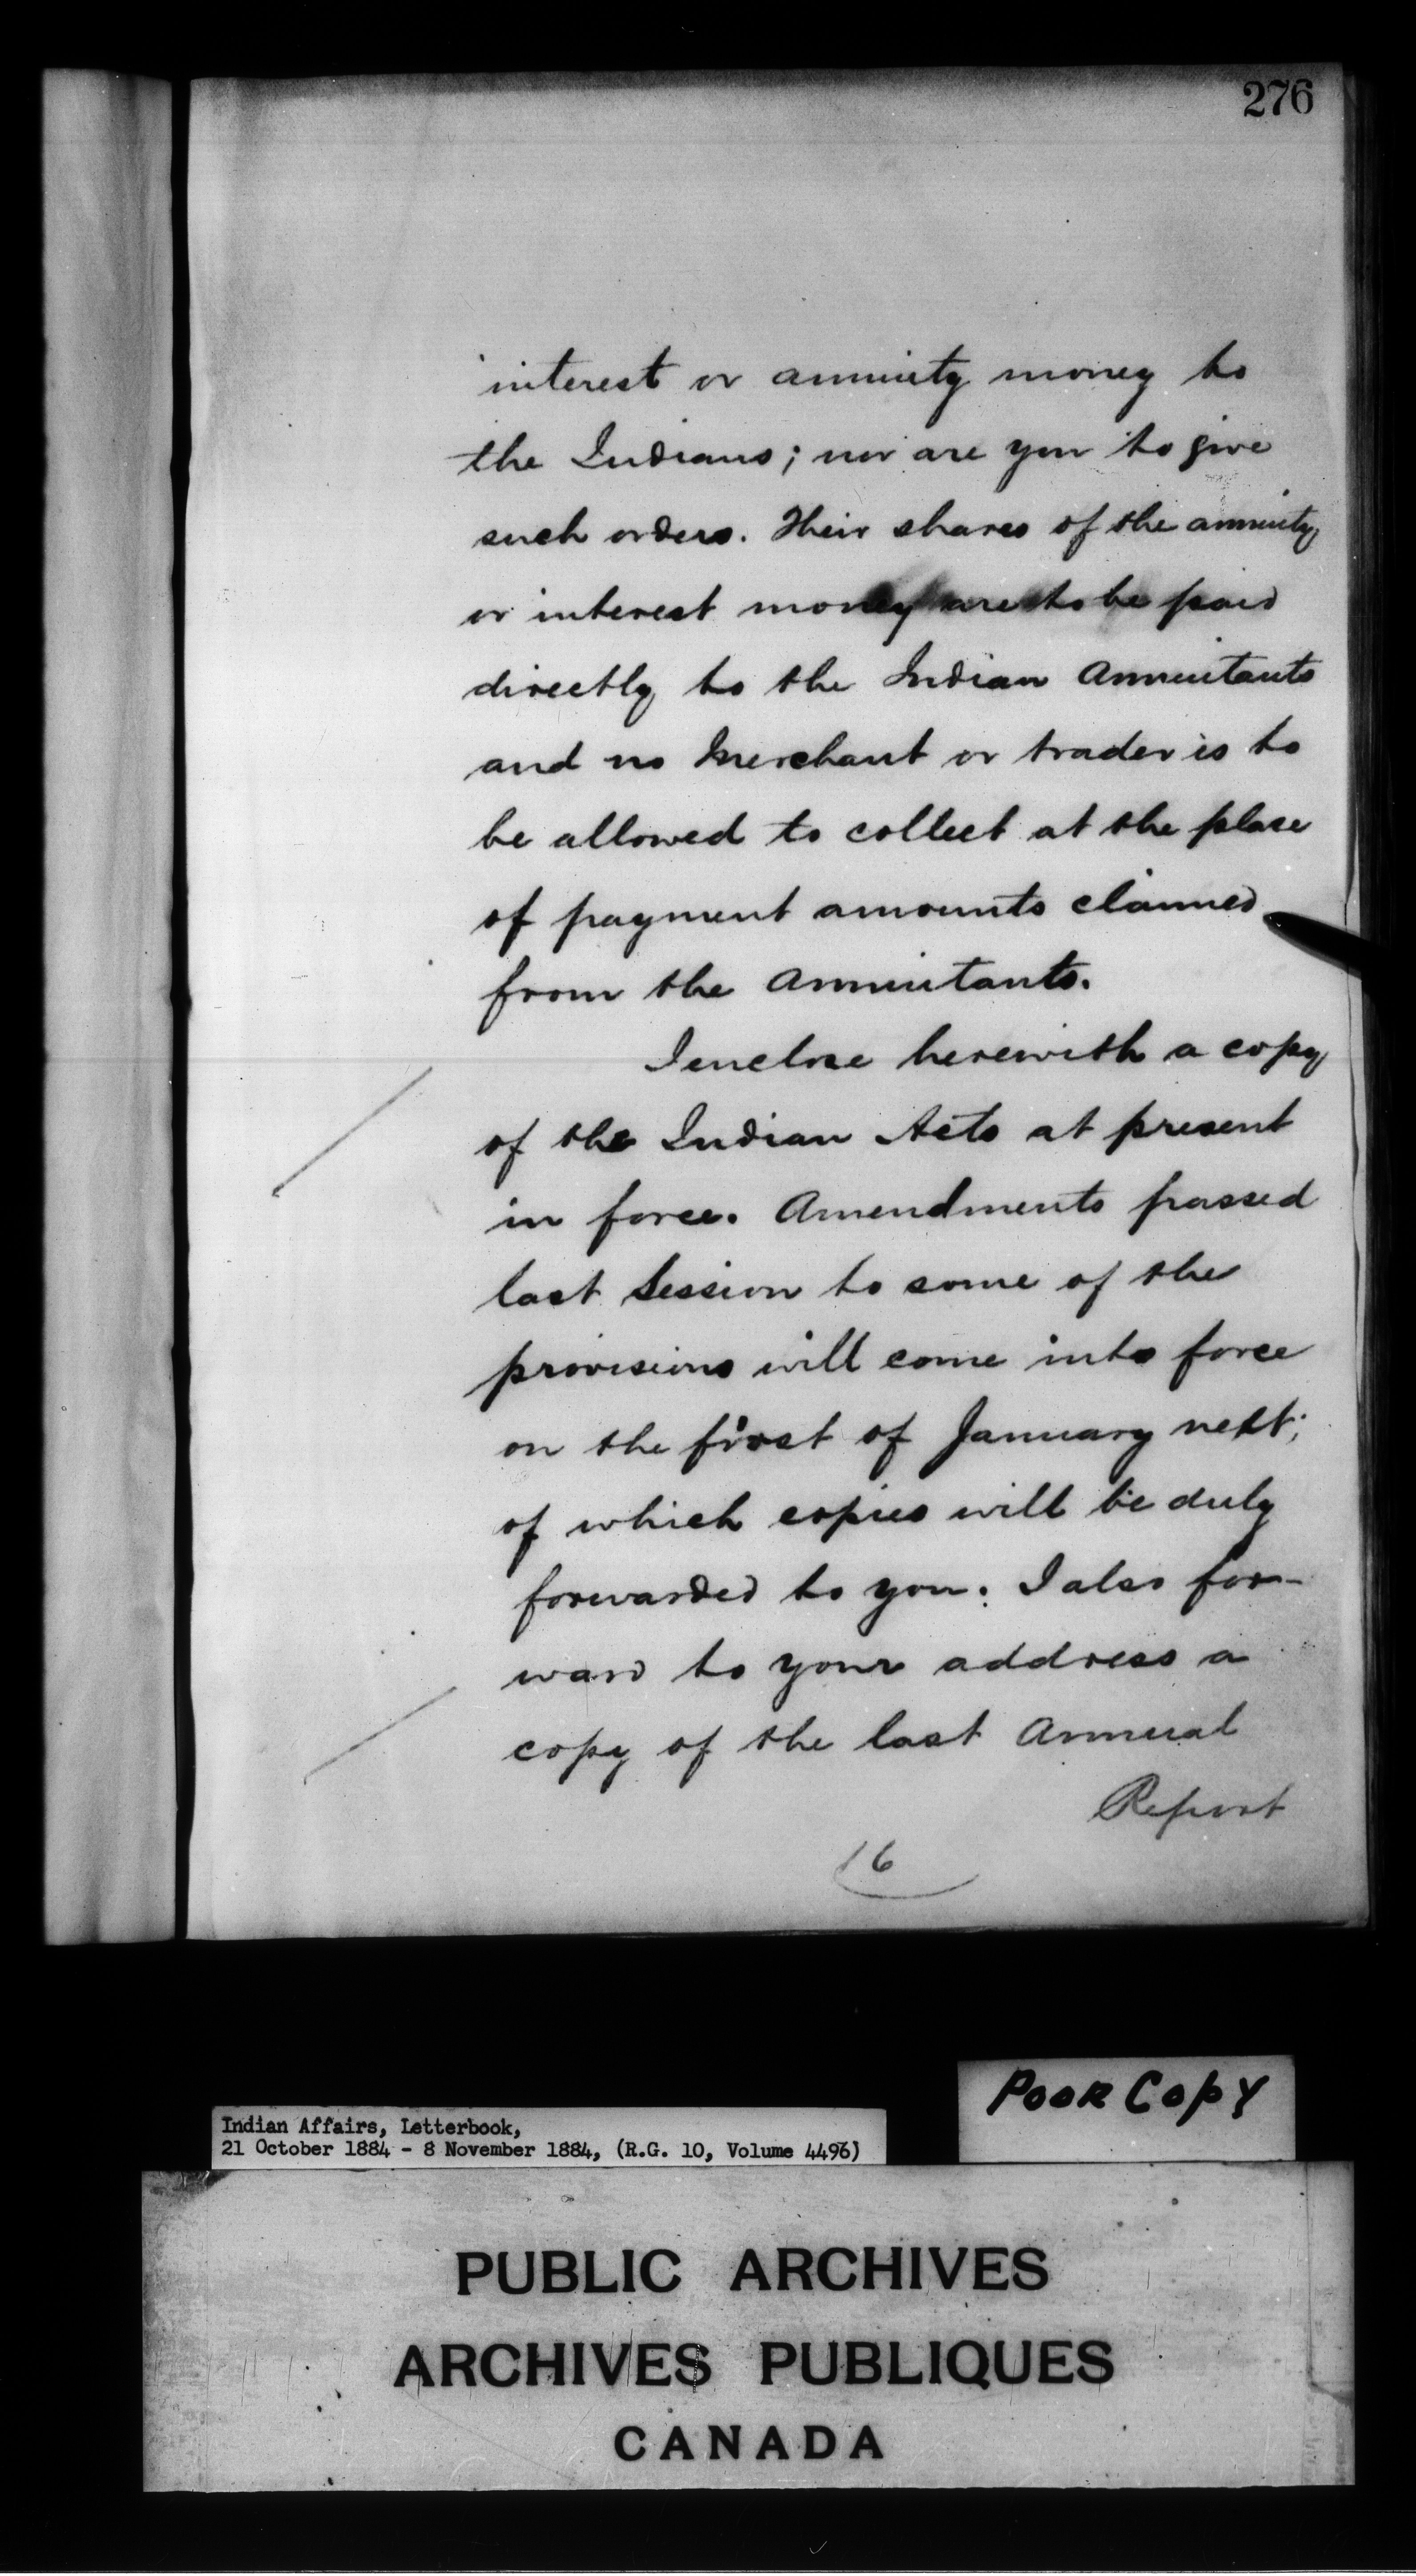 276
interest or annuity money to
the Indians; nor are you to give
such orders. Their shares of the annuity
or interest money are to be paid
directly to the Indian Annuitants
and no Merchant or trader is to
be allowed to collect at the place
of payment amounts claimed
from the Annuitants.
I enclose herewith a copy
of the Indian Acts at present
in force. Amendments passed
last Session to some of the
provisions will come into force
on the first of January next;
of which copies will be duly
forwarded to you. I also for-
ward to your address a
copy of the last Annual
Report
16
POOR COPY
Indian Affairs, Letterbook,
21 October 1884 - 8 November 1884, (R.G. 10, Volume 4496)
PUBLIC ARCHIVES
ARCHIVES PUBLIQUES
CANADA